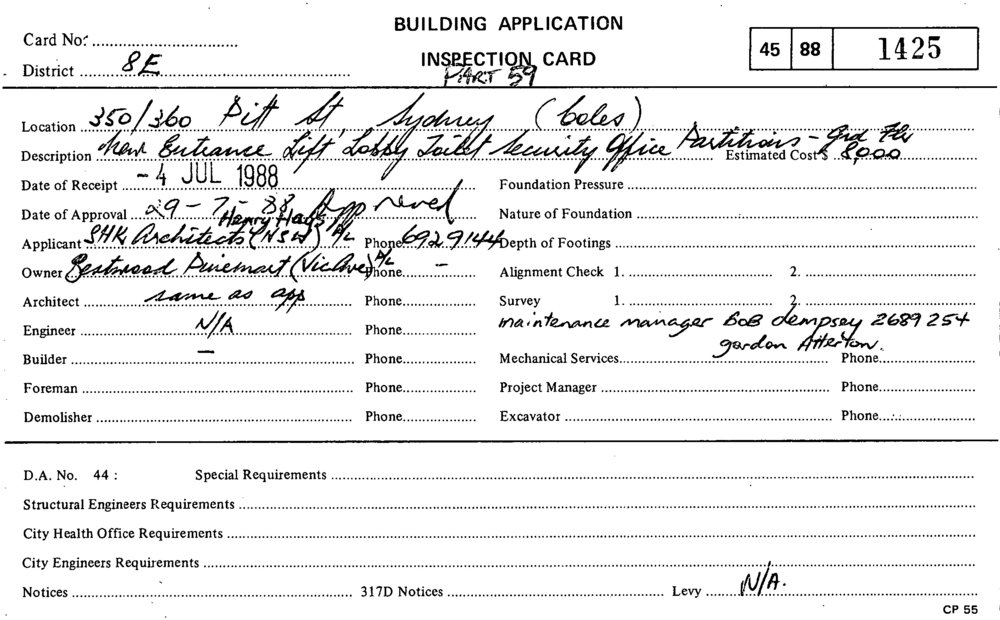 BUILDING APPLICATION
INSPECTION CARD
PART 59
Card No:
District 8E
45 88 1425
Location 350/360 Pitt St, Sydney (Coles)
Description New Entrance Lift Lobby Toilet Security Office Partitions - Grd Flr
Estimated Cost $ 8,000
Date of Receipt - 4 JUL 1988
Foundation Pressure
Date of Approval 29 - 7 - 88 Approved
Nature of Foundation
Henry Hays
Applicant SHK Architects (NSW) P/L Phone 6929144 Depth of Footings
Owner Pivemart (Vic Ave) P/L Phone -
Alignment Check 1. 2.
Architect same as app Phone
Survey 1. 2.
Engineer N/A Phone
maintenance manager BoB dempsey 2689254
gordon Atterton.
Builder - Phone
Mechanical Services Phone
Foreman Phone
Project Manager Phone
Demolisher Phone
Excavator Phone
D.A. No. 44 : Special Requirements
Structural Engineers Requirements
City Health Office Requirements
City Engineers Requirements
Notices 317D Notices Levy N/A.
CP 55